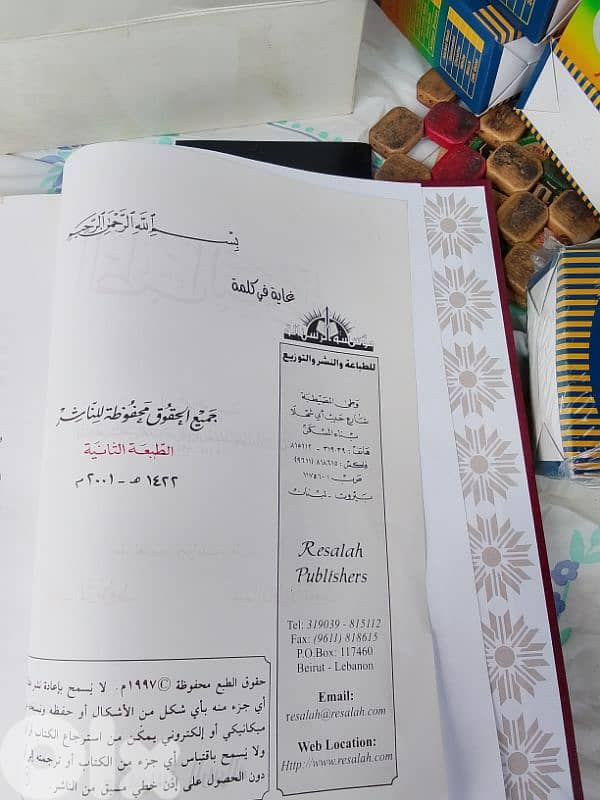 بسم الله الرحمن الرحيم
غاية في كلمة
مؤسسة الرسالة
للطباعة والنشر والتوزيع
وطى المصيطبة
شارع حبيب أبي شهلا
بناء المسكن
هاتف: ٣١٩٠٣٩ - ٨١٥١١٢
فاكس: ٨١٨٦١٥ (٩٦١١)
ص.ب: ١١٧٤٦٠
بيروت - لبنان
جميع الحقوق محفوظة للناشر
الطبعة الثانية
١٤٢٢ هـ - ٢٠٠١ م
Resalah
Publishers
Tel: 319039 - 815112
Fax: (9611) 818615
P.O.Box: 117460
Beirut - Lebanon
Email:
resalah@resalah.com
Web Location:
Http://www.resalah.com
حقوق الطبع محفوظة © ١٩٩٧م. لا يُسمح بإعادة نشر
أي جزء منه بأي شكل من الأشكال أو حفظه ونسخه
ميكانيكي أو إلكتروني يمكن من استرجاع الكتاب أو
ولا يسمح باقتباس أي جزء من الكتاب أو ترجمته
دون الحصول على إذن خطي مسبق من الناشر.
olx